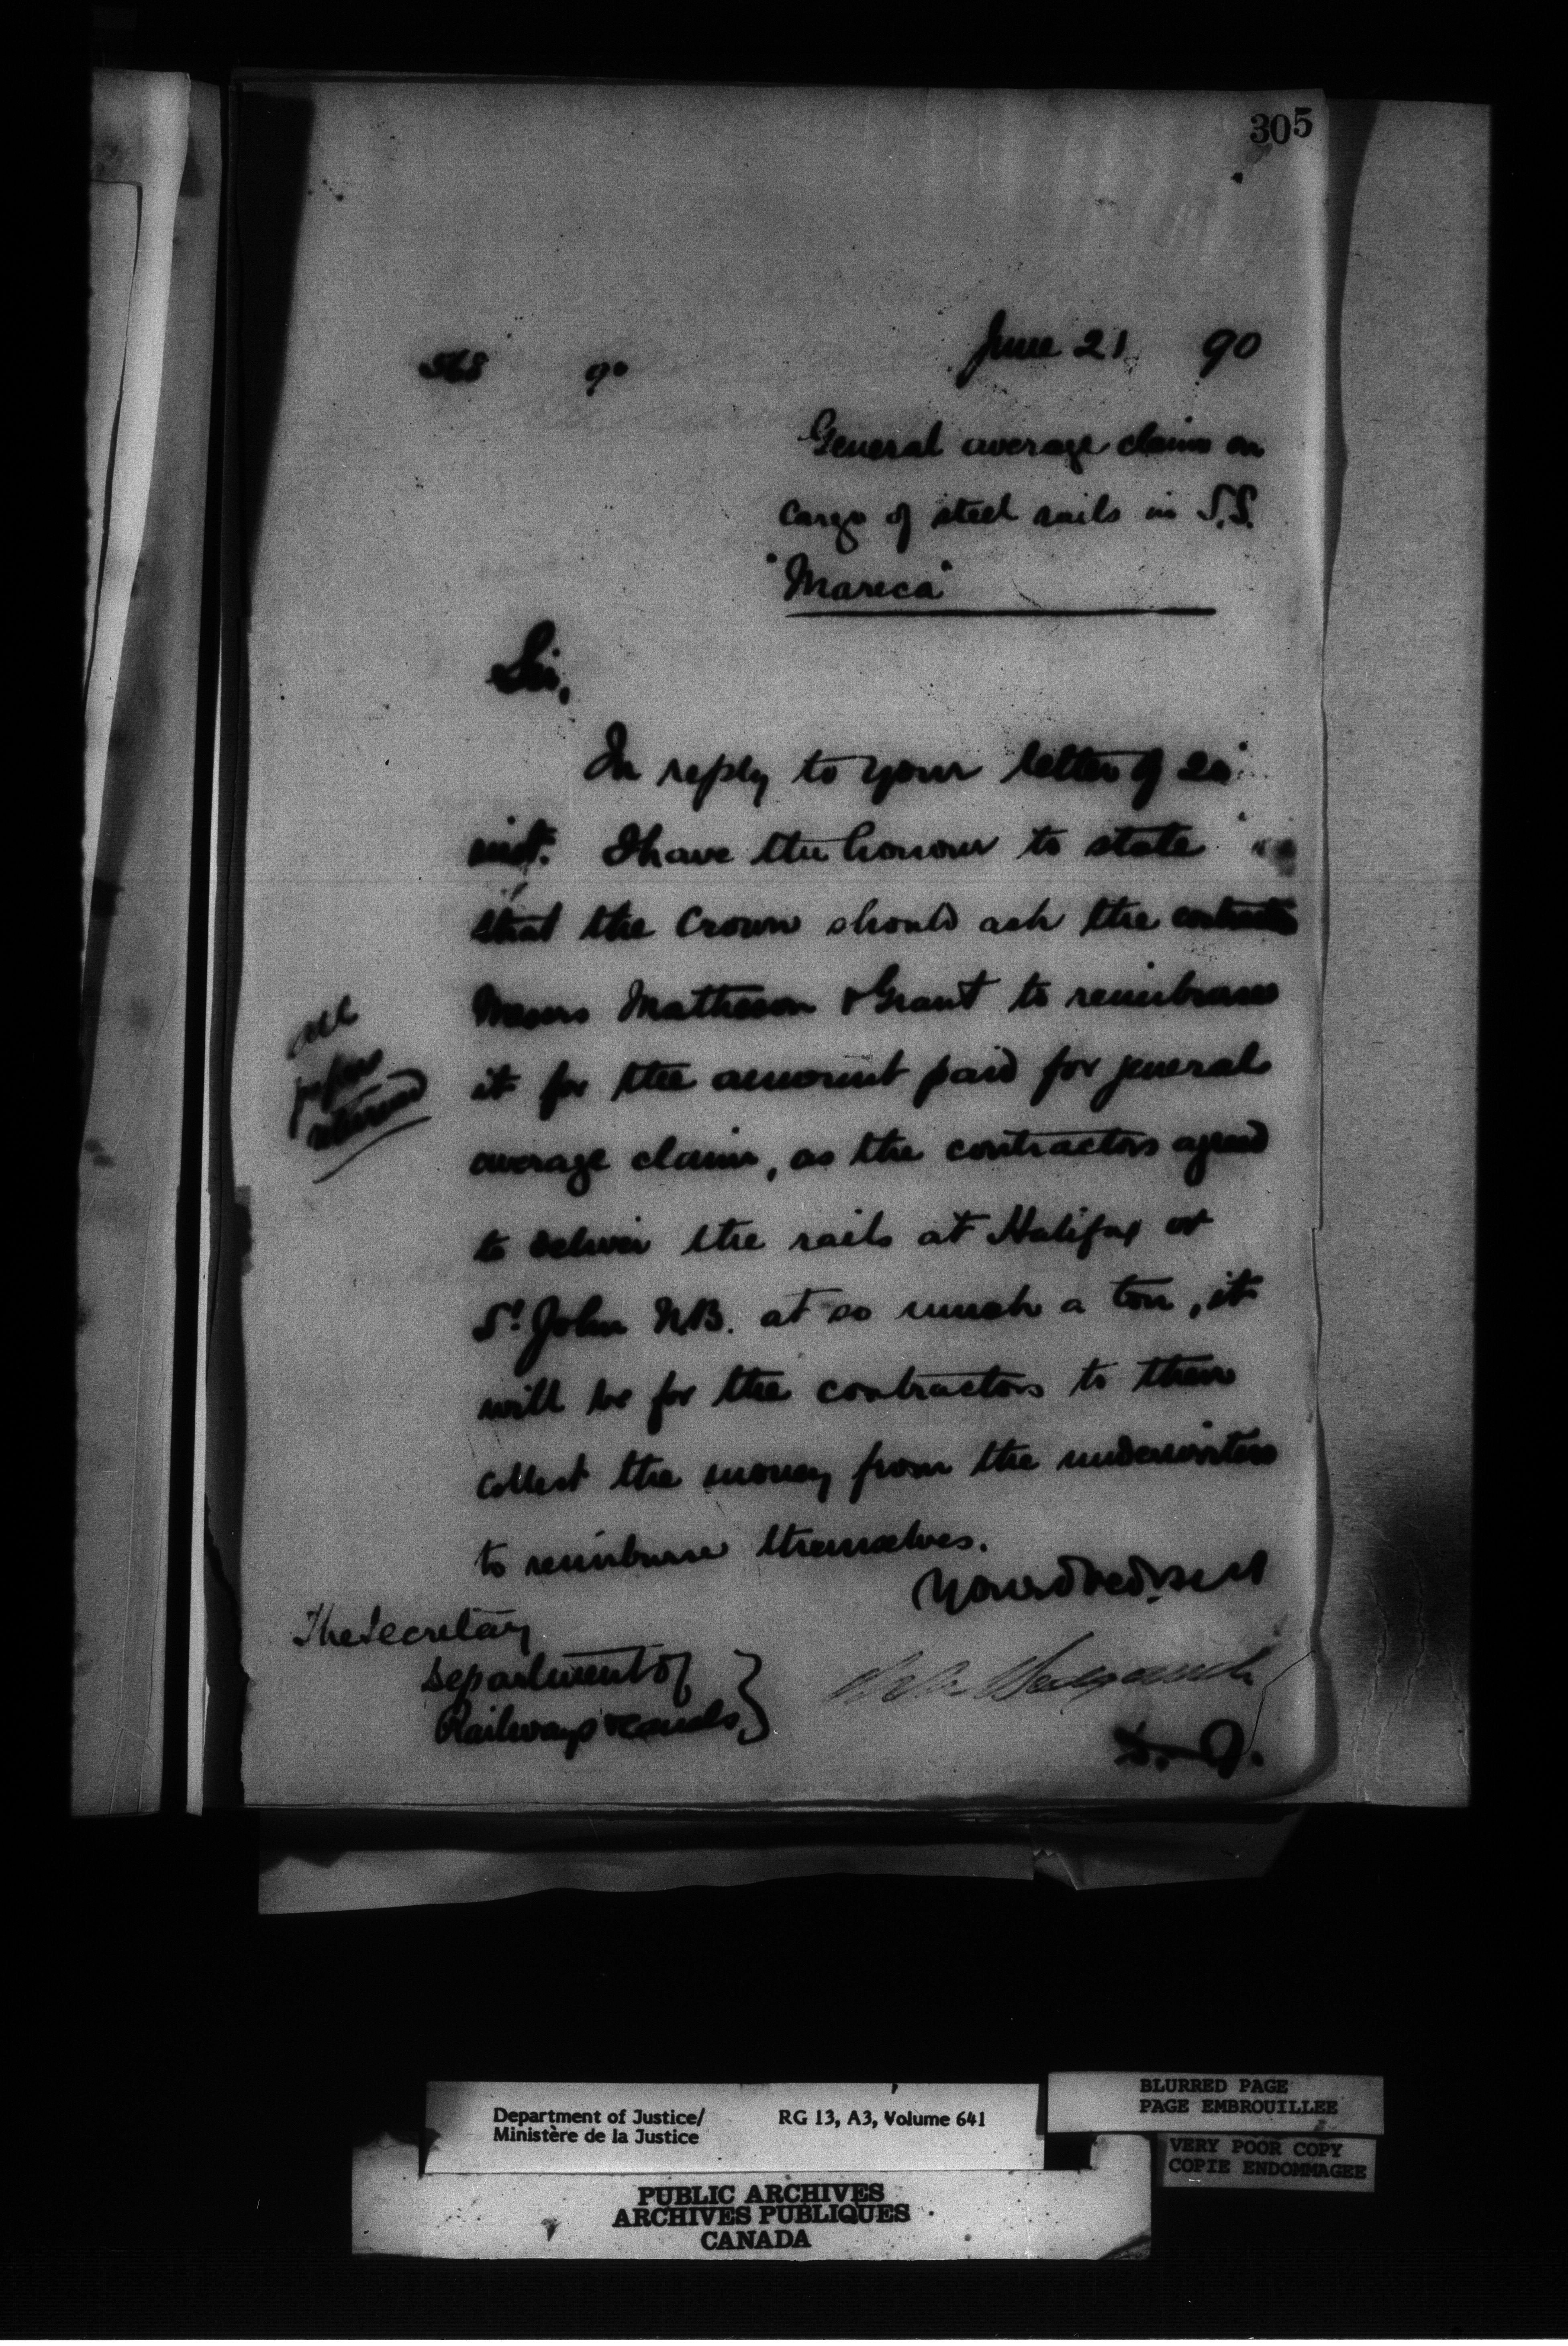 305
June 21 90
568 90
General average claim on
cargo of steel rails in S.S.
"Mareca"
Sir,
In reply to your letter of 20
inst. I have the honour to state
that the Crown should ask the contractors
Messrs Matheson & Grant to reimburse
it for the amount paid for general
average claim, as the contractors agreed
to deliver the rails at Halifax or
St. John N.B. at so much a ton, it
will be for the contractors to then
collect the money from the underwriters
to reimburse themselves.
all
papers
returned
The Secretary
Department of
Railways & Canals
Department of Justice/
Ministère de la Justice
RG 13, A3, Volume 641
BLURRED PAGE
PAGE EMBROUILLEE
VERY POOR COPY
COPIE ENDOMMAGEE
PUBLIC ARCHIVES
ARCHIVES PUBLIQUES
CANADA